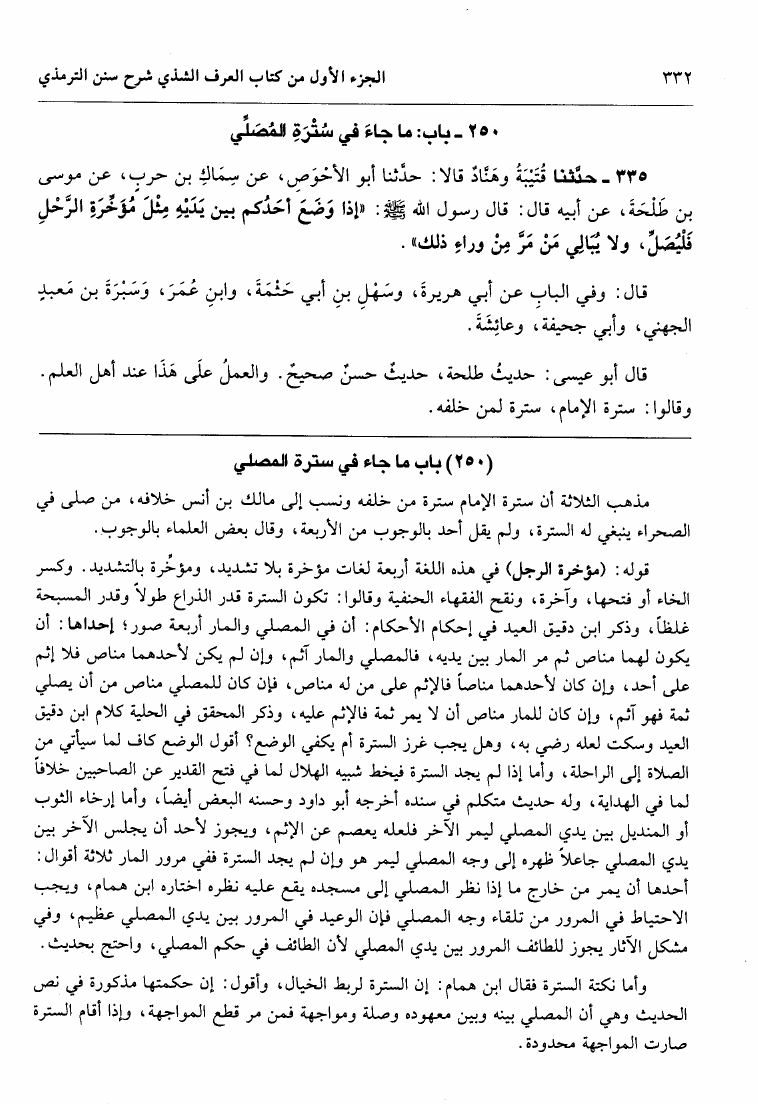 ٣٣٢ الجزء الأول من كتاب العرف الشذي شرح سنن الترمذي
٢٥٠ ـ باب: ما جاءَ في سُتْرَةِ المُصَلِّي
٣٣٥ ـ حدَّثنا قُتَيْبَةُ وهَنَّادٌ قالا: حدَّثنا أبو الأحْوَصِ، عن سِمَاكِ بن حربٍ، عن موسى
بن طَلْحَةَ، عن أبيه قال: قال رسول الله ﷺ: «إذا وَضَعَ أحَدُكم بين يَدَيْهِ مِثْلَ مُؤَخَّرَةِ الرَّحْلِ
فَلْيُصَلِّ، ولا يُبَالِي مَنْ مَرَّ مِنْ وراءِ ذلك».
قال: وفي البابِ عن أبي هريرةَ، وسَهْلِ بنِ أبي حَثْمَةَ، وابنِ عُمَرَ، وَسَبْرَةَ بن مَعبدٍ
الجهني، وأبي جحيفة، وعائِشَةَ.
قال أبو عيسى: حديثُ طلحة، حديثٌ حسنٌ صحيحٌ. والعملُ علَى هَذَا عند أهل العلم.
وقالوا: سترة الإمامِ، سترة لمن خلفه.
(٢٥٠) باب ما جاء في سترة المصلي
مذهب الثلاثة أن سترة الإمام سترة من خلفه ونسب إلى مالك بن أنس خلافه، من صلى في
الصحراء ينبغي له السترة، ولم يقل أحد بالوجوب من الأربعة، وقال بعض العلماء بالوجوب.
قوله: (مؤخرة الرجل) في هذه اللغة أربعة لغات مؤخرة بلا تشديد، ومؤخَّرة بالتشديد. وكسر
الخاء أو فتحها، وآخرة، ونقح الفقهاء الحنفية وقالوا: تكون السترة قدر الذراع طولاً وقدر المسبحة
غلظاً، وذكر ابن دقيق العيد في إحكام الأحكام: أن في المصلي والمار أربعة صور؛ إحداها: أن
يكون لهما مناص ثم مر المار بين يديه، فالمصلي والمار آثم، وإن لم يكن لأحدهما مناص فلا إثم
على أحد، وإن كان لأحدهما مناصاً فالإثم على من له مناص، فإن كان للمصلي مناص من أن يصلي
ثمة فهو آثم، وإن كان للمار مناص أن لا يمر ثمة فالإثم عليه، وذكر المحقق في الحلية كلام ابن دقيق
العيد وسكت لعله رضي به، وهل يجب غرز السترة أم يكفي الوضع؟ أقول الوضع كاف لما سيأتي من
الصلاة إلى الراحلة، وأما إذا لم يجد السترة فيخط شبيه الهلال لما في فتح القدير عن الصاحبين خلافاً
لما في الهداية، وله حديث متكلم في سنده أخرجه أبو داود وحسنه البعض أيضاً، وأما إرخاء الثوب
أو المنديل بين يدي المصلي ليمر الآخر فلعله يعصم عن الإثم، ويجوز لأحد أن يجلس الآخر بين
يدي المصلي جاعلاً ظهره إلى وجه المصلي ليمر هو وإن لم يجد السترة ففي مرور المار ثلاثة أقوال:
أحدها أن يمر من خارج ما إذا نظر المصلي إلى مسجده يقع عليه نظره اختاره ابن همام، ويجب
الاحتياط في المرور من تلقاء وجه المصلي فإن الوعيد في المرور بين يدي المصلي عظيم، وفي
مشكل الآثار يجوز للطائف المرور بين يدي المصلي لأن الطائف في حكم المصلي، واحتج بحديث.
وأما نكتة السترة فقال ابن همام: إن السترة لربط الخيال، وأقول: إن حكمتها مذكورة في نص
الحديث وهي أن المصلي بينه وبين معهوده وصلة ومواجهة فمن مر قطع المواجهة، وإذا أقام السترة
صارت المواجهة محدودة.